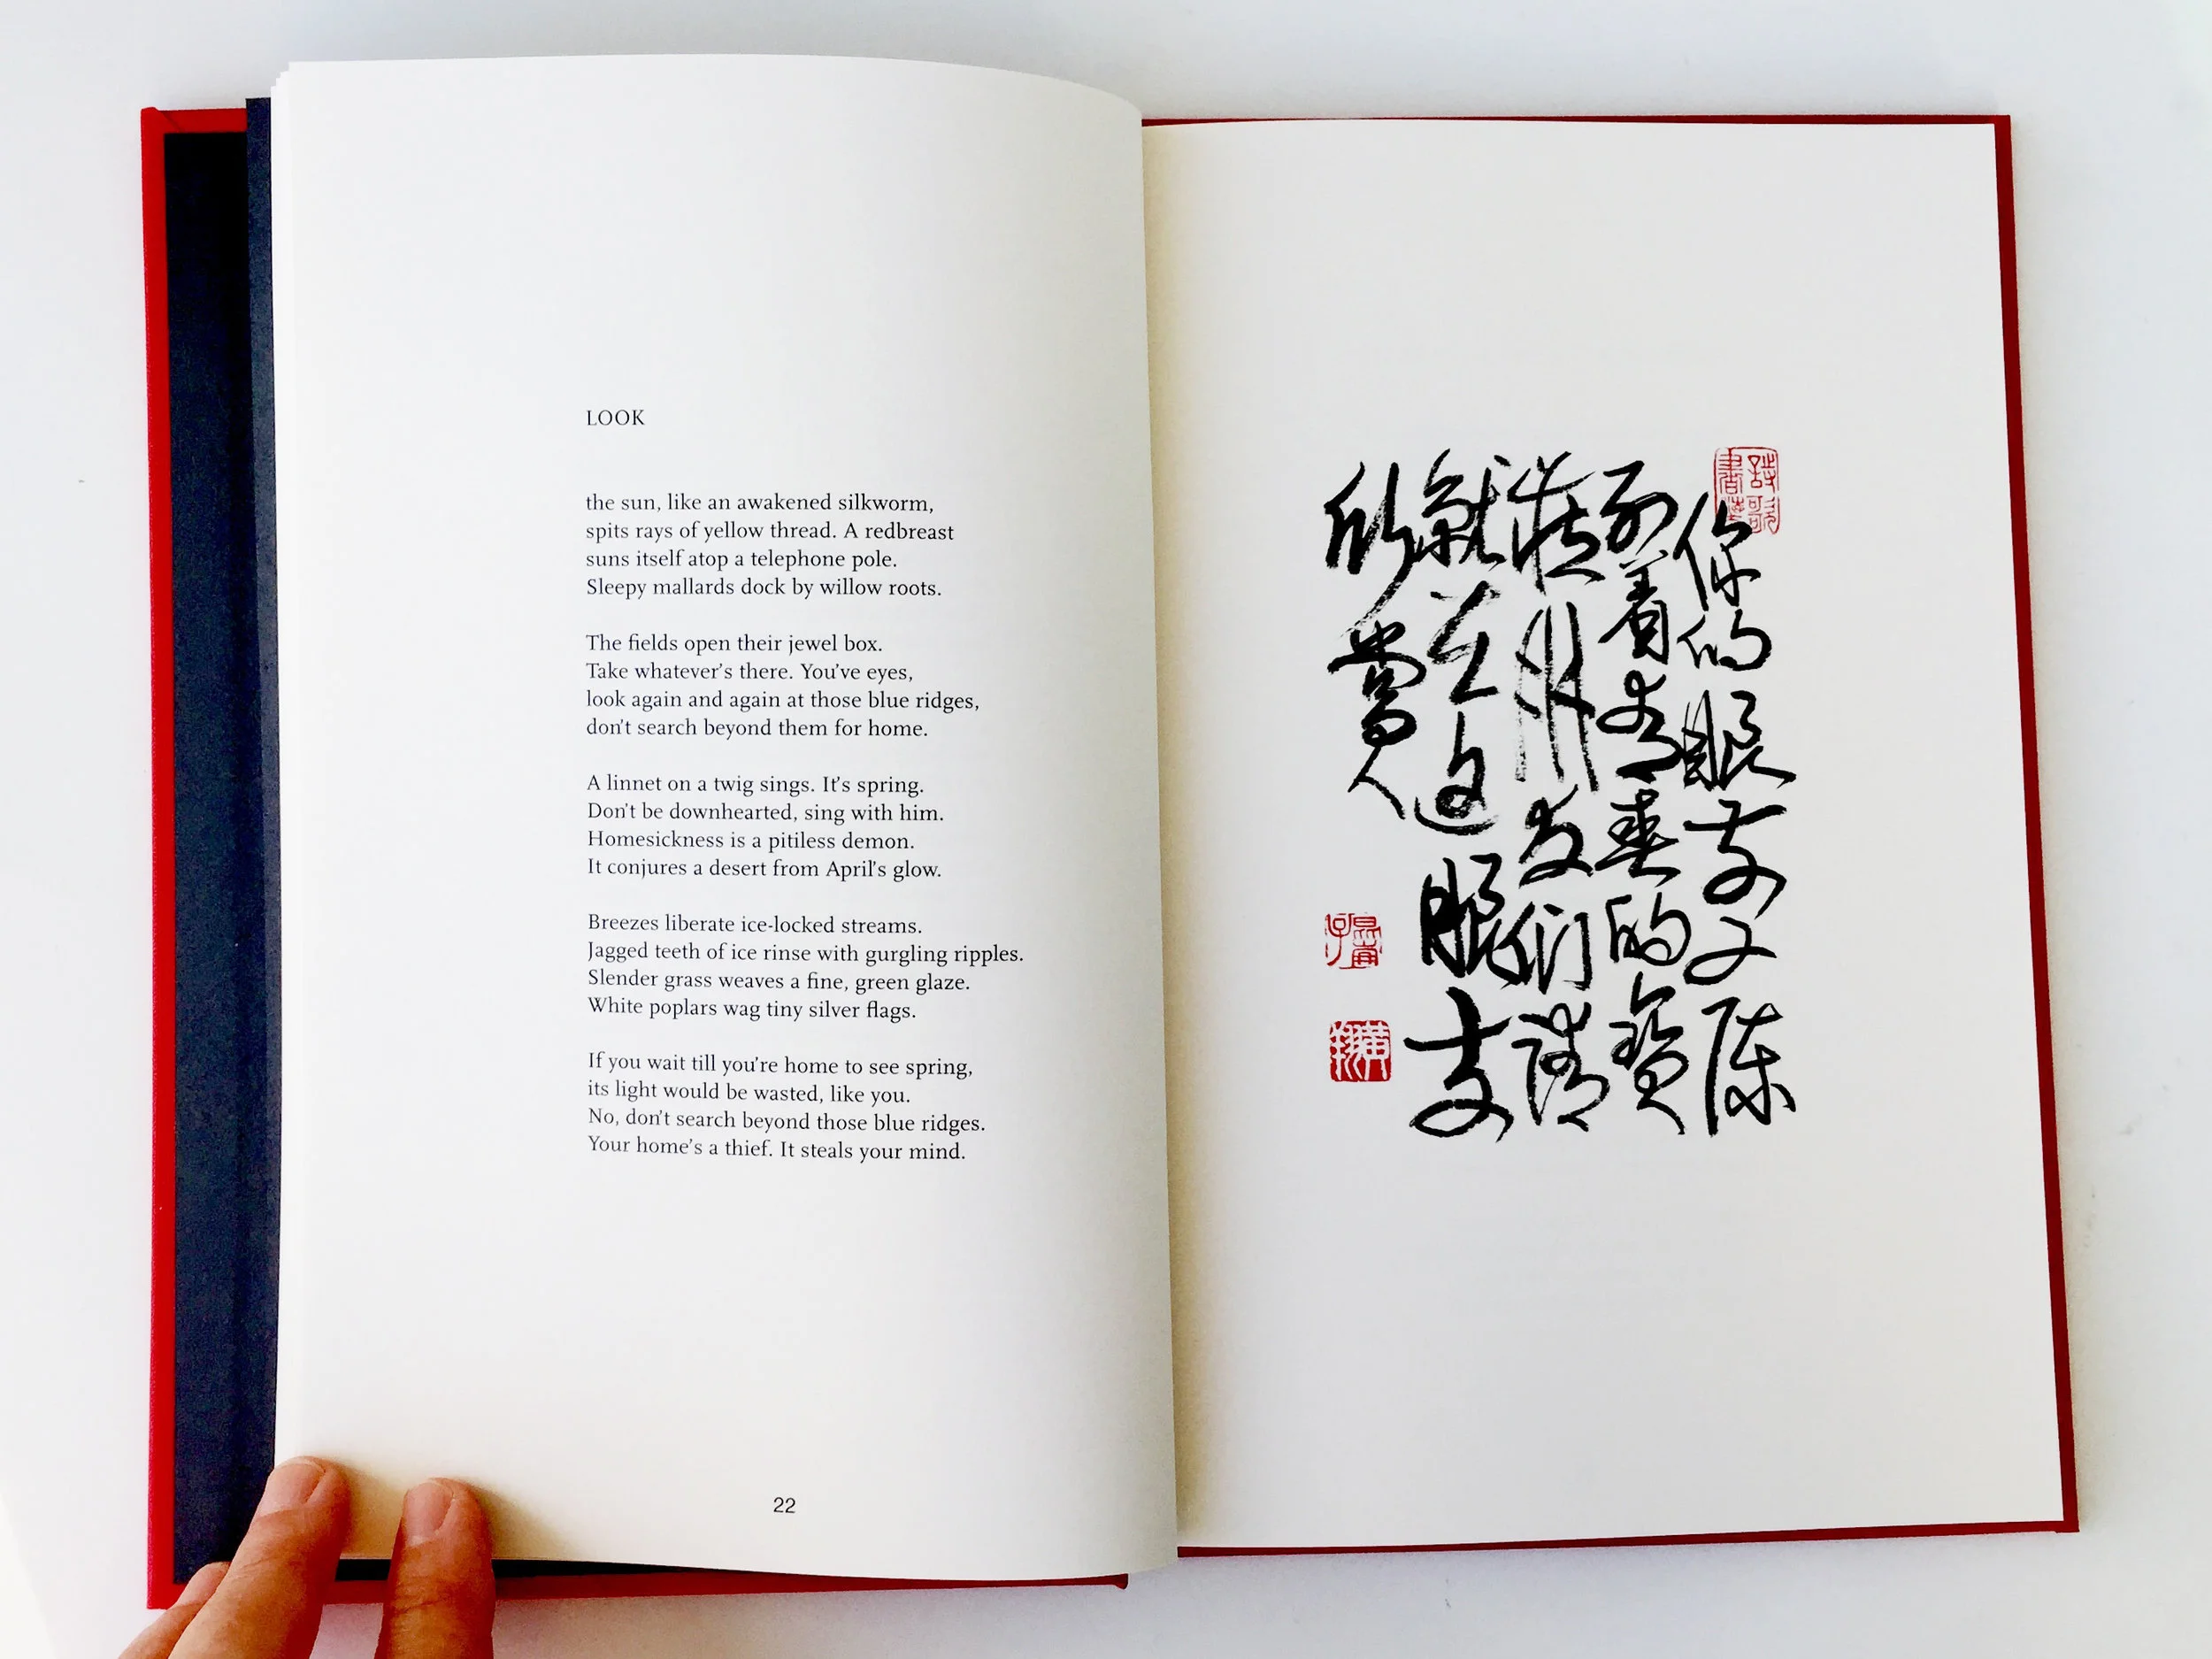 LOOK
the sun, like an awakened silkworm,
spits rays of yellow thread. A redbreast
suns itself atop a telephone pole.
Sleepy mallards dock by willow roots.
The fields open their jewel box.
Take whatever's there. You've eyes,
look again and again at those blue ridges,
don't search beyond them for home.
A linnet on a twig sings. It's spring.
Don't be downhearted, sing with him.
Homesickness is a pitiless demon.
It conjures a desert from April's glow.
Breezes liberate ice-locked streams.
Jagged teeth of ice rinse with gurgling ripples.
Slender grass weaves a fine, green glaze.
White poplars wag tiny silver flags.
If you wait till you're home to see spring,
its light would be wasted, like you.
No, don't search beyond those blue ridges.
Your home's a thief. It steals your mind.
22
詩歌書法
你的眼前又陈
列着青春的宝
藏朋友们请
就在这眼前
欣赏
黄翔